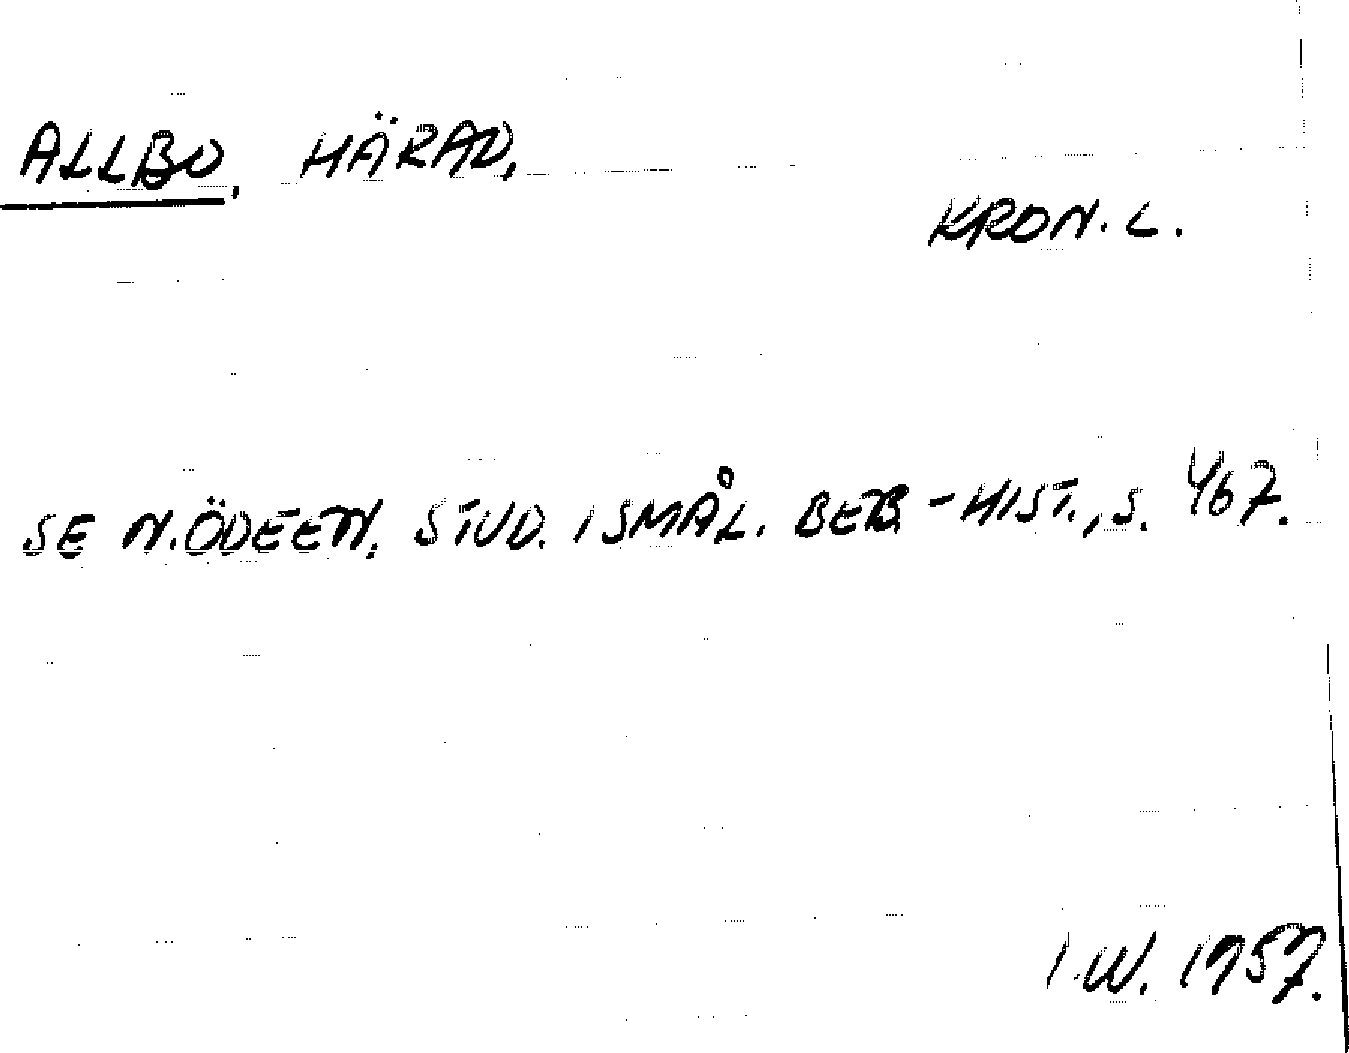 ALLBO, HÄRAD,
KRON. L.
SE N. ÖDEEN, STUD. I SMÅL. BEB.-HIST., S. 467.
I.W. 1957.